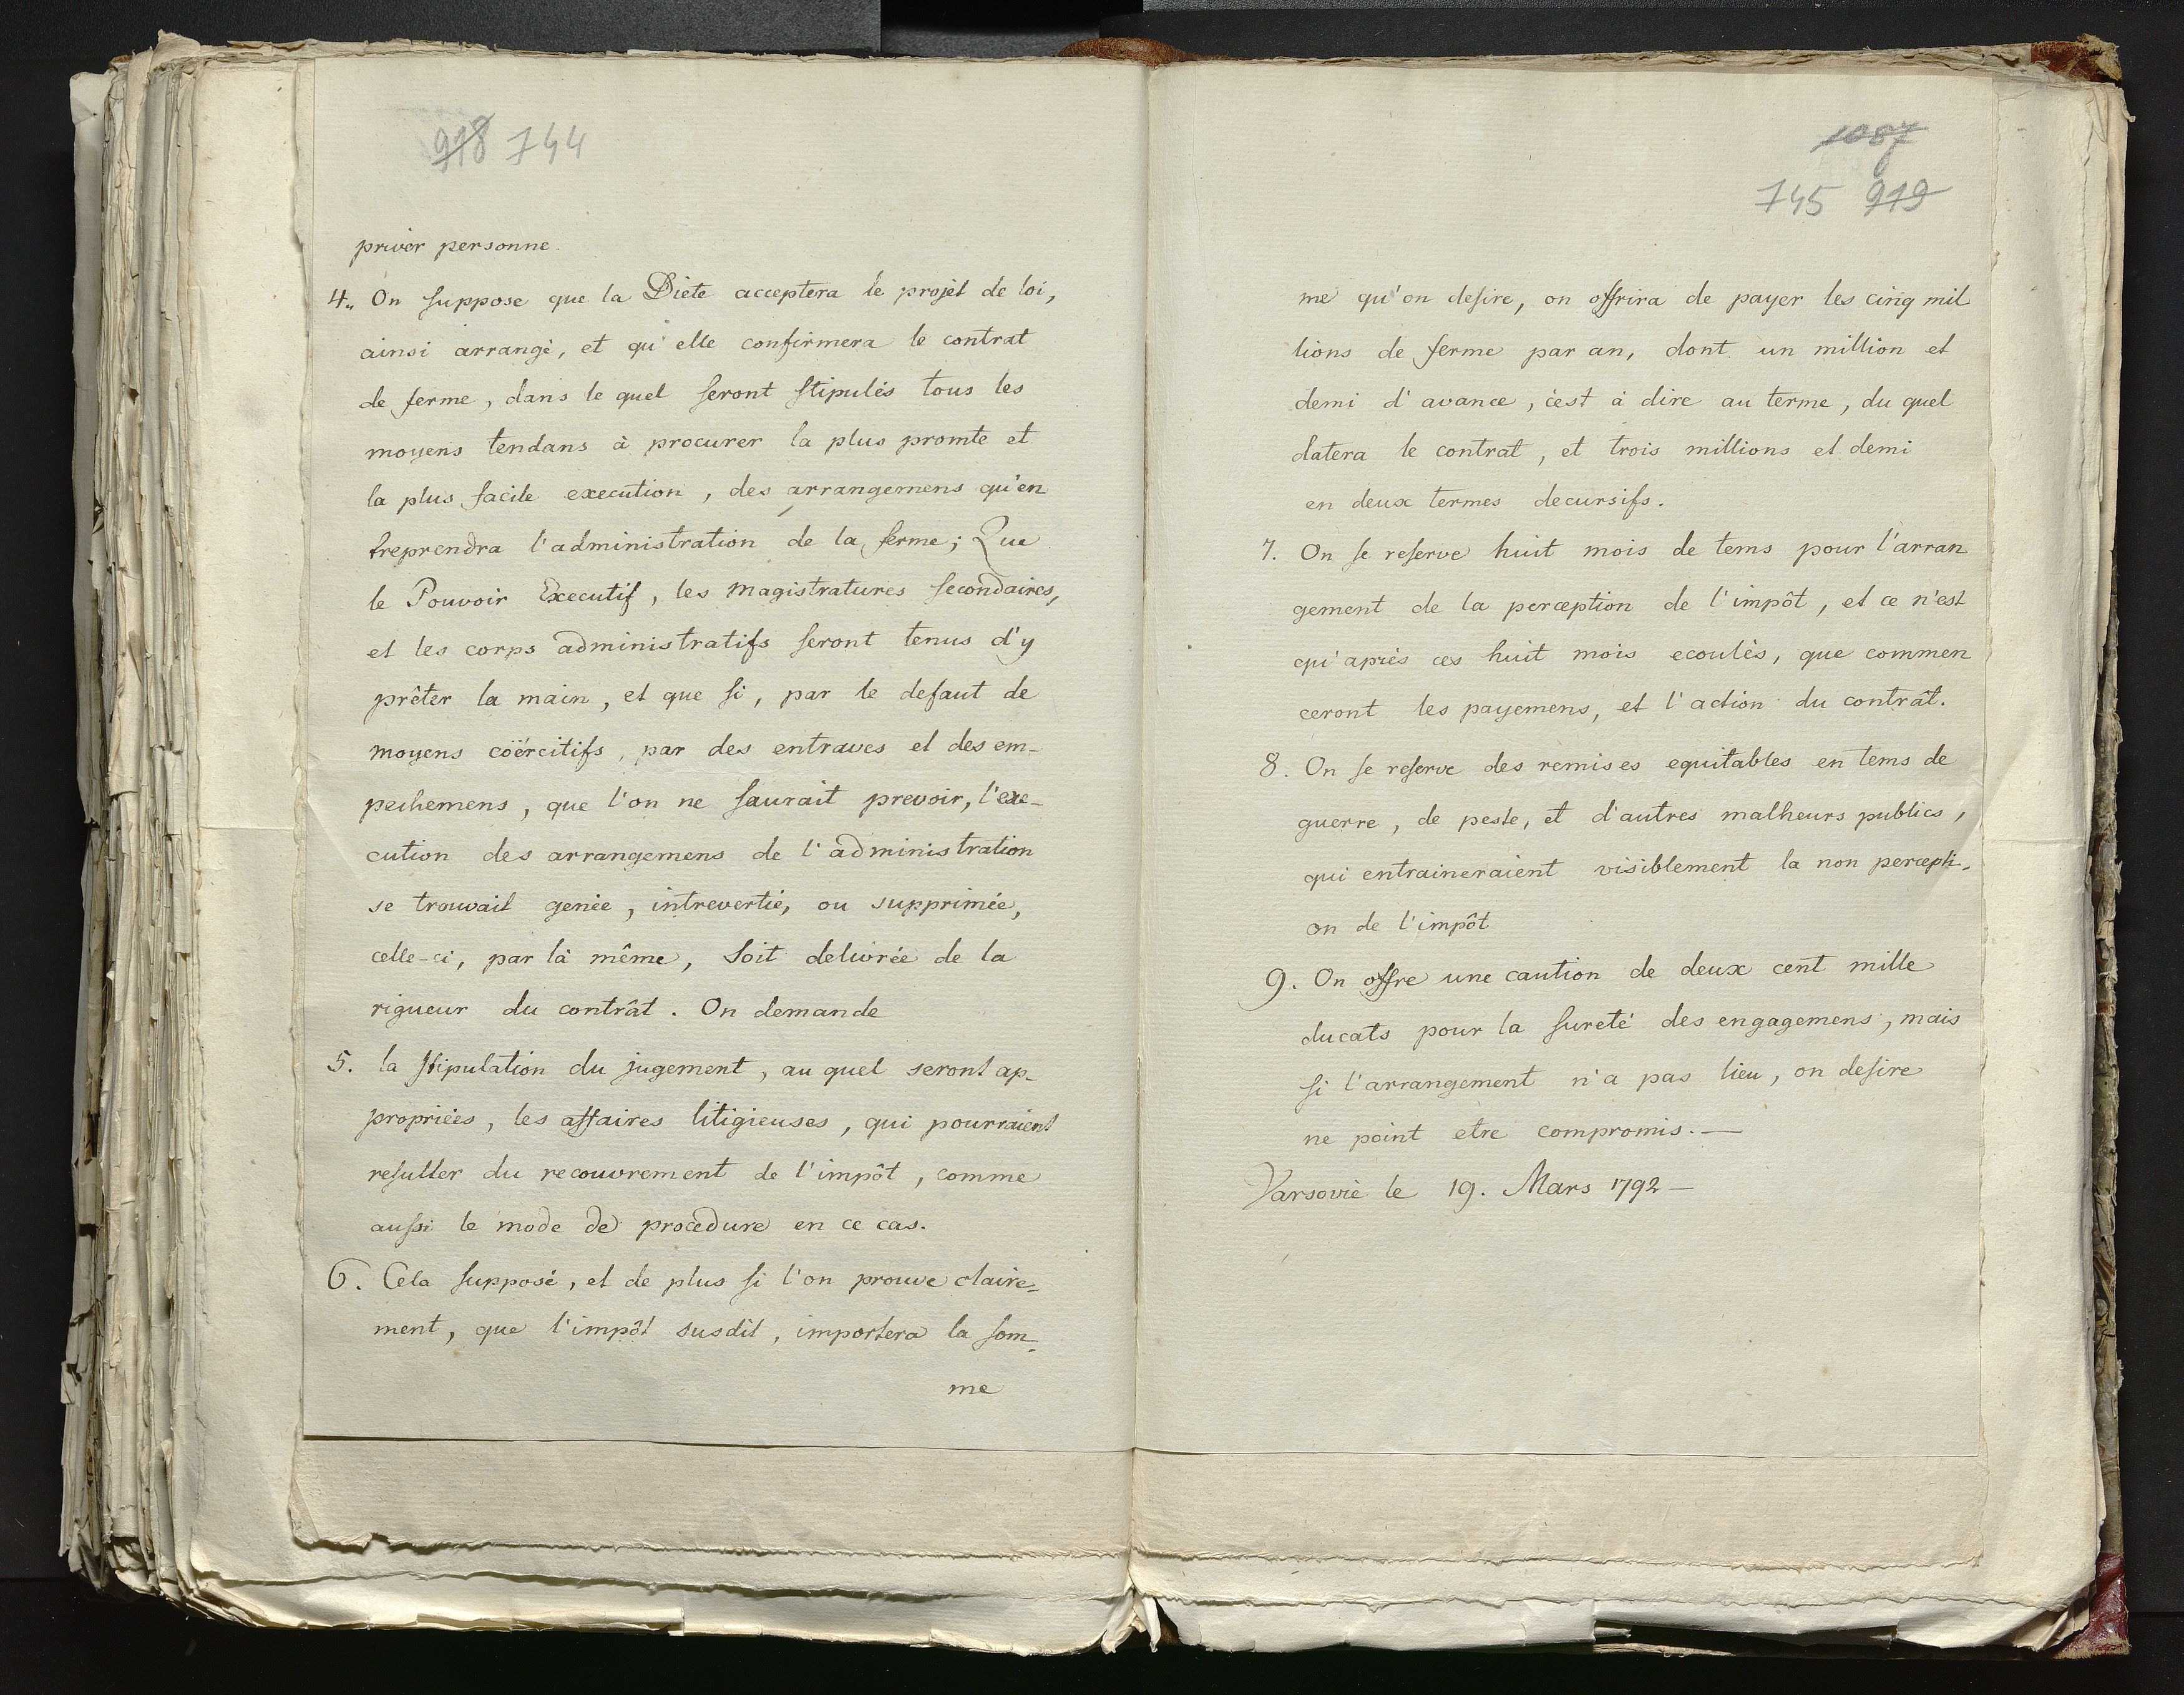 918 744
priver personne.
4. On suppose que la Diete acceptera le projet de loi,
ainsi arrangé, et qu'elle confirmera le contrat
de ferme, dans le quel seront stipulés tous les
moyens tendans à procurer la plus promte et
la plus facile execution, des arrangemens qu'en
treprendra l'administration de la ferme; Que
le Pouvoir Executif, les Magistratures secondaires,
et les corps administratifs seront tenus d'y
prêter la main, et que si, par le defaut de
moyens coërcitifs, par des entraves et des em-
pechemens, que l'on ne saurait prevoir, l'exe-
cution des arrangemens de l'administration
se trouvait genée, intrevertie, ou supprimée,
celle-ci, par là même, soit delivrée de la
rigueur du contrât. On demande
5. la stipulation du jugement, au quel seront ap-
propriées, les affaires litigieuses, qui pourraient
resulter du recouvrement de l'impôt, comme
aussi le mode de procedure en ce cas.
6. Cela supposé, et de plus si l'on prouve claire-
ment, que l'impôt susdit, importera la som-
me
1087
745 919
me qu'on desire, on offrira de payer les cinq mil
lions de ferme par an, dont un million et
demi d'avance, c'est à dire au terme, du quel
datera le contrat, et trois millions et demi
en deux termes decursifs.
7. On se reserve huit mois de tems pour l'arran
gement de la perception de l'impôt, et ce n'est
qu'après ces huit mois ecoulés, que commen
ceront les payemens, et l'action du contrât.
8. On se reserve des remises equitables en tems de
guerre, de peste, et d'autres malheurs publics,
qui entraineraient visiblement la non percepti-
on de l'impôt
9. On offre une caution de deux cent mille
ducats pour la sureté des engagemens, mais
si l'arrangement n'a pas lieu, on desire
ne point etre compromis. —
Varsovie le 19. Mars 1792 —